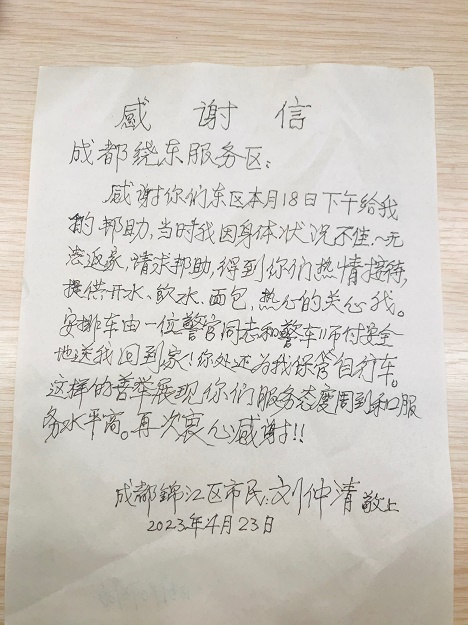 感谢信
成都绕东服务区：
感谢你们东区本月18日下午给我
的帮助，当时我因身体状况不佳～无
法返家，请求帮助，得到你们热情接待，
提供开水、饮水、面包，热心的关心我。
安排车由一位警官同志和警车川师付安全
地送我回到家！你处还为我保管自行车。
这样的善举展现你们服务态度周到和服
务水平高。再次衷心感谢！！
成都錦江区市民：刘仲清敬上
2023年4月23日